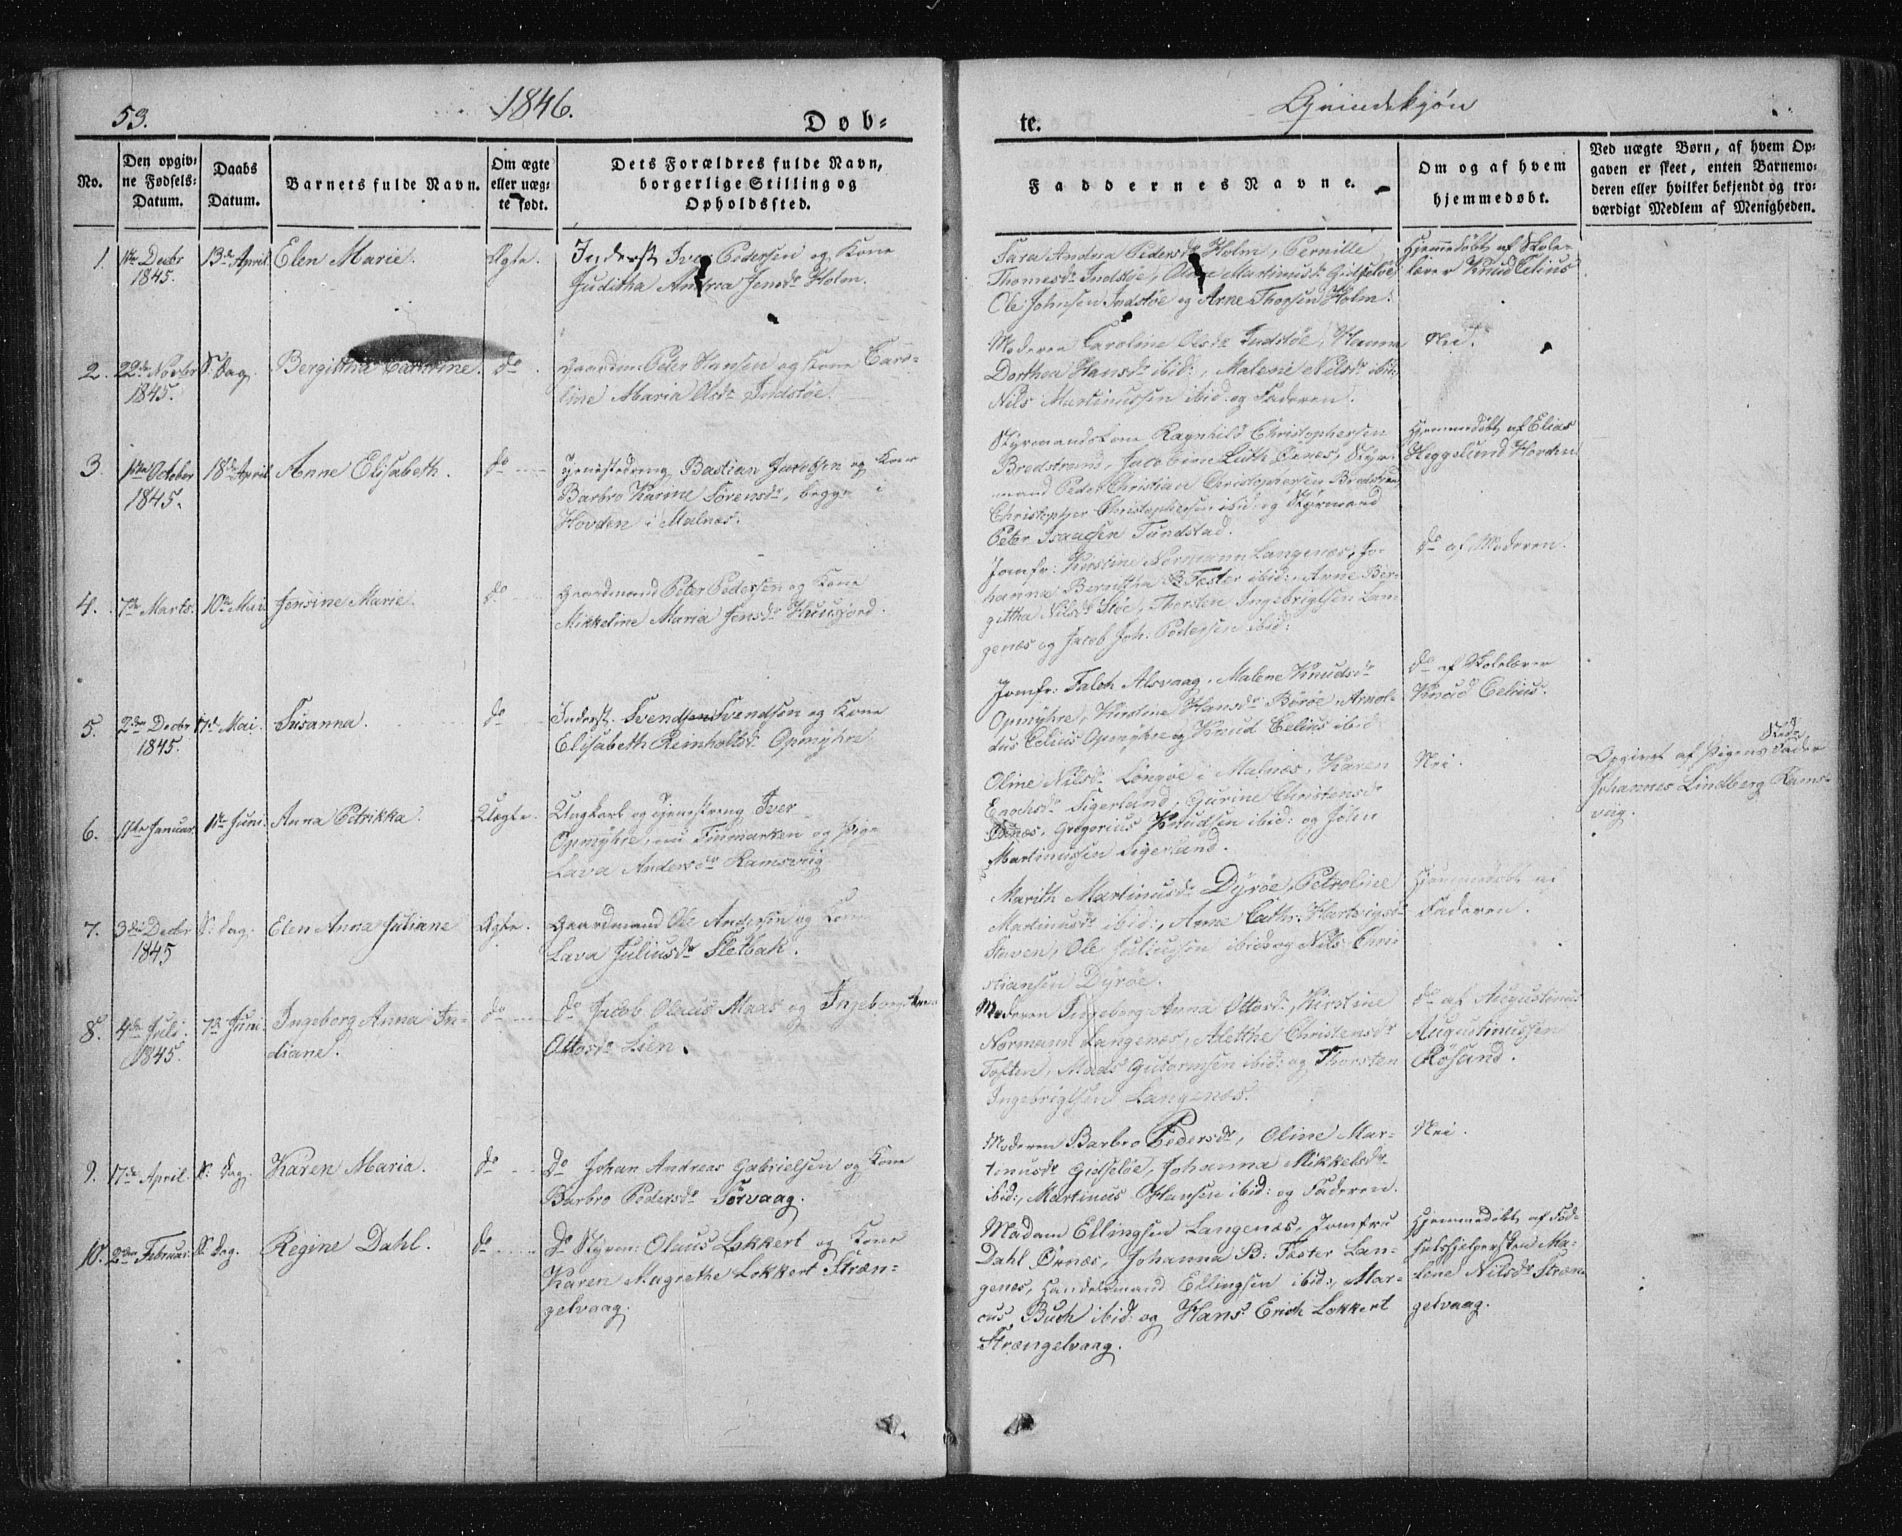 53.
1846.
Døb-
te.
Qvindekjøn
No.
Den opgiv-
ne Fødsels-
Datum.
Daabs
Datum.
Barnets fulde Navn.
Om ægte
eller uæg-
te født.
Dets Forældres fulde Navn,
borgerlige Stilling og
Opholdssted.
Faddernes Navne.
Om og af hvem
hjemmedøbt.
Ved uægte Børn, af hvem Op-
gaven er skeet, enten Barnemo-
deren eller hvilket bekjendt og tro-
værdigt Medlem af Menigheden.
1. 1ste Decbr 13de April Elen Marie. Ægte. Inderst Iver Pedersen og Kone
1845. Juditha Andrea Jensdr Holm.
Sara Andrea Pedersdr Holm, Pernille
Thomesdr Indstøe, Oline Martinusdr Gidsløe
Ole Johnsen Indstøe og Arne Thogsen Holm.
Hjemmedøbt af Skole-
lærer Knud Celius
2. 22de Novbr S. Dag. Bergitha Cathrine. do. Gaardm: Peter Hansen og Kone Caro-
1845. line Maria Olsdr Indstøe.
Moderen Caroline Olsdr Indstøe, Hanna
Dorthea Hansdr ibid:, Malene Nilsdr ibid:
Nils Martinussen ibid: og Faderen.
Nei.
3. 1ste October 18de April Anne Elisabeth. do Tjenestedreng Bastian Jacobsen og Kone
1845. Barbro Karine Sørensdr, begge i
Hovden i Malnæs.
Styrmandskone Ragnhild Christophersen
Bredstrand, Jacobine Lüth Ørnes, Styr-
mand Peder Christian Christophersen Bredstrand
Christopher Christophersen ibid: og Styrmand
Peter Isaachsen Tundstad.
Hjemmedøbt af Elias
Heggelund Hovden
4. 7de Marts. 10de Mai Jensine Marie. do Gaardmand Peter Pedersen og Kone
Mikkeline Maria Jensdr Huusjord.
Jomfr: Kirstine Normann Langenæs, Jo-
hanna Bernitha B Fester ibid:, Arne Ber-
githa Nilsdr Støe, Thorsten Ingebrigtsen Lan-
genæs og Jacob Joh. Pedersen ibid:
do af Moderen.
5. 2den Decbr 17d Mai. Susanna. do Inderst. Svend Svendsen og Kone
1845. Elisabeth Reinholtdr Opmyhre
Jomfr: Falch Alsvaag, Malene Knudsdr
Opmyhre, Kirstine Hansdr Børøe, Arnol-
dus Celius Opmyhre og Knud Celius ibid
do af Skolelærer
Knud Celius.
6. 11te Januar. 1ste Juni. Anna Petrikka. Uægte. Ungkarl og Tjenestedreng Iver
Opmyhre, nu Finmarken og Pige
Lava Andersdr Ramsviig
Oline Nilsdr Longøe i Malnæs, Karen
Enochsdr Sigerland, Gurine Christensdr
Ørnæs, Gregorius Knudsen ibid: og John
Martinussen Sigerland.
Nei.
Opgivet af Pigens Fader
Johannes Lindberg Rams-
viig.
7. 3die Decbr S. Dag. Elen Anna Juliane Ægte. Gaardmand Ole Andersen og Kone
1845 Lava Juliusdr Sletbak.
Marith Martinusdr Dyrøe, Petroline
Martinusdr ibid:, Arne Cath: Hartvigsdr
Staven, Ole Juliussen ibid: og Nils Chri-
stiansen Dyrøe.
Hjemmedøbt af
Faderen.
8. 4de Juli. 7de Juni. Ingeborg Anna In- do do Jacob Olaus Maas og Ingeborg Anna
1845. diane. Ottosdr Lien.
Moderen Ingeborg Anna Ottosdr, Kirstine
Normann Langenæs, Alethe Christensdr
Toften, Mads Gutormsen ibid: og Thorsten
Ingebrigtsen Langenæs.
do af Augustinus
Augustinussen
Røsand.
9. 17de April. S. Dag. Karen Maria. do Do Johan Andreas Gabrielsen og Kone
Barbro Pedersdr Sørvaag.
Moderen Barbro Pedersdr, Oline Mar-
tinusdr Gidsløe, Johanna Mikkelsdr
ibid:, Martinus Hansen ibid: og Faderen.
Nei.
10. 2den Februar. S. Dag. Regine Dahl. do Do Styrm: Olaus Lokkert og Kone
Karen Magrethe Lokkert Stræn-
gelvaag.
Madam Ellingsen Langenæs, Jomfru
Dahl Ørnæs, Johanna B: Fester Lan-
genæs, Handelsmand Ellingsen ibid:, Mar-
cus Buch ibid: og Hans Erich Lokkert
Strængelvaag.
Hjemmedøbt af Fød-
selshjelpersken Ma-
lene Nilsdr Stræn-
gelvaag.